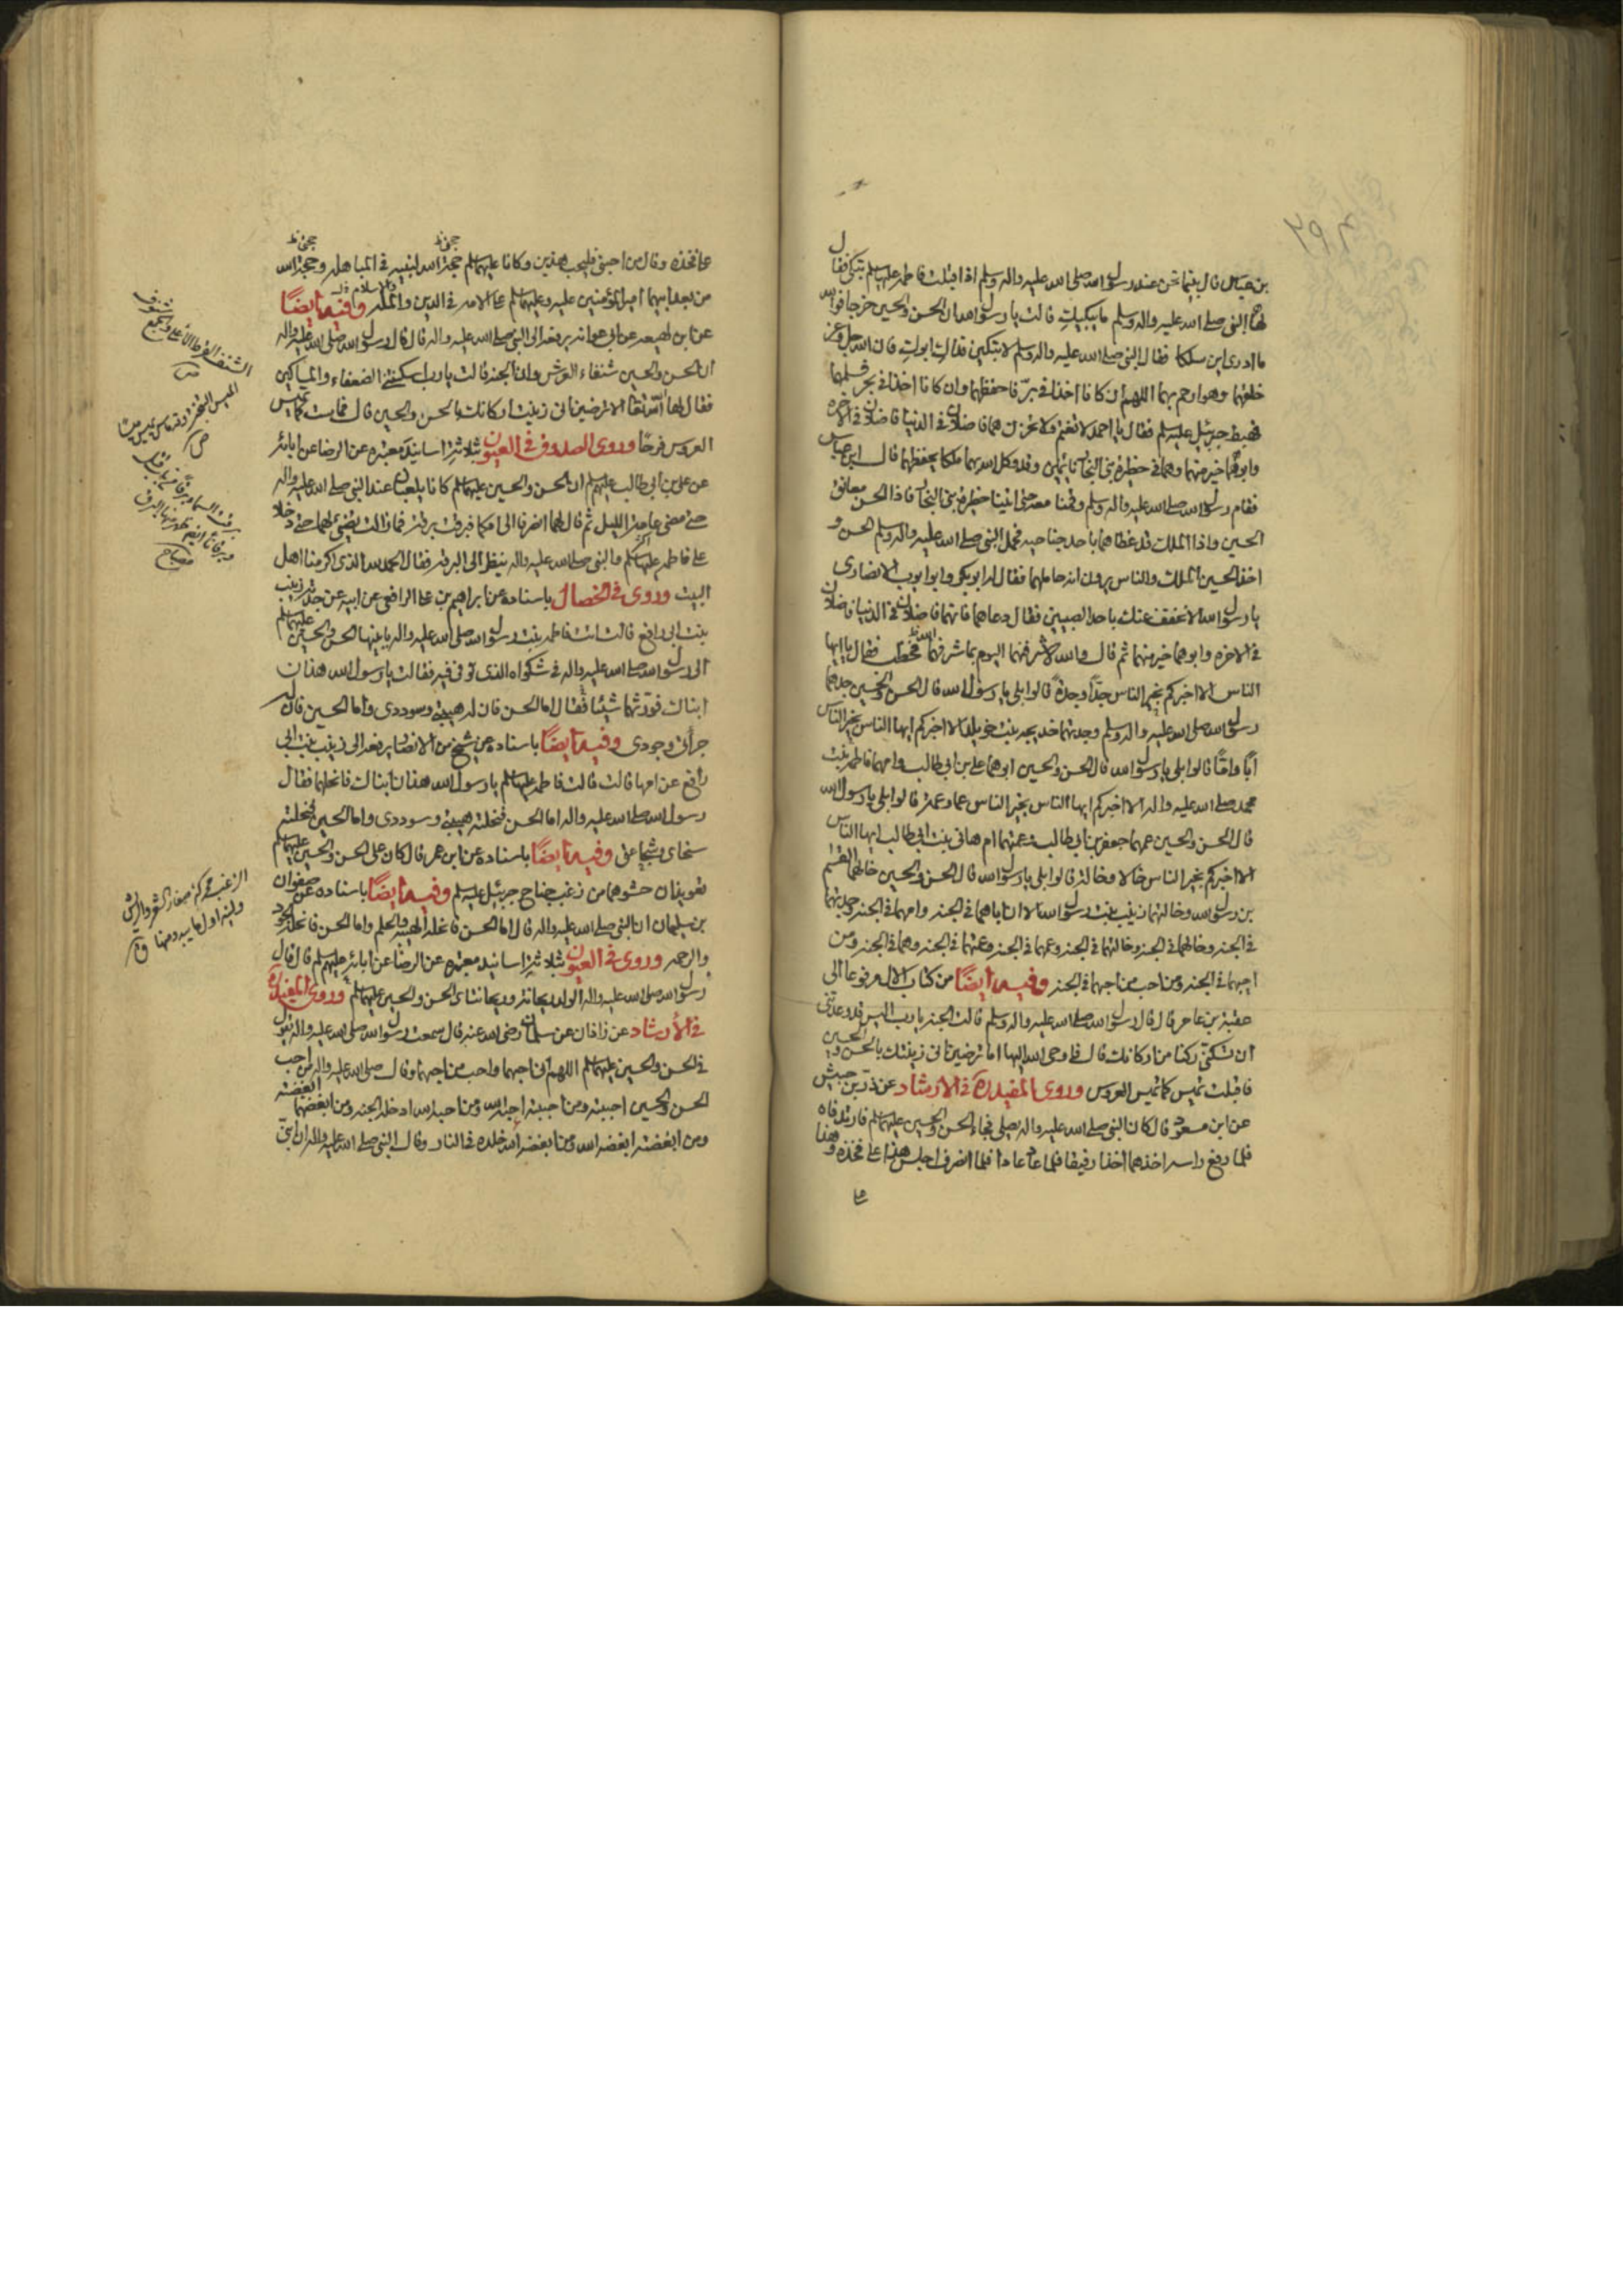 بن عباس قال بينما نحن عند رسول الله صلى الله عليه واله وسلم اذ اقبلت فاطمه عليها السلم تبكى فقال
لها النبى صلى الله عليه واله وسلم ما يبكيك قالت يا رسول الله ان الحسن والحسين خرجا فوالله
ما ادرى اين سلكا فقال النبى صلى الله عليه واله وسلم لا تبكين فداك ابوك فان الله عز وجل
خلقهما وهو ارحم بهما اللهم ان كانا اخذا فى بر فاحفظهما وان كانا اخذا فى بحر فسلمهما
فهبط جبرئيل عليه السلم فقال يا احمد لا تغتم ولا تحزن هما فاضلان فى الدنيا فاضلان فى الاخره
وابوهما خير منهما وهما فى حظيرة بنى النجار نائمين وقد وكل الله بهما ملكا يحفظهما قال ابن عباس
فقام رسول الله صلى الله عليه واله وسلم وقمنا معه حتى اتينا حظيرة بنى النجار فاذا الحسن معانق
الحسين واذا الملك قد غطاهما باحد جناحيه فحمل النبى صلى الله عليه واله وسلم الحسن و
اخذ الحسين الملك والناس يرون انه حاملهما فقال له ابو بكر وابو ايوب الانصارى
يا رسول الله الا نخفف عنك باحد الصبيين فقال دعاهما فانهما فاضلان فى الدنيا فاضلان
فى الاخره وابوهما خير منهما ثم قال والله لاشرفنهما اليوم بما شرفهما الله فخطب فقال يا ايها
الناس الا اخبركم بخير الناس جدا وجدة قالوا بلى يا رسول الله قال الحسن والحسين جدهما
رسول الله صلى الله عليه واله وسلم وجدتهما خديجه بنت خويلد الا اخبركم ايها الناس بخير الناس
ابا واما قالوا بلى يا رسول الله قال الحسن والحسين ابوهما على بن ابى طالب وامهما فاطمه بنت
محمد صلى الله عليه واله الا اخبركم ايها الناس بخير الناس عما وعمة قالوا بلى يا رسول الله
قال الحسن والحسين عمهما جعفر بن ابى طالب وعمتهما ام هانى بنت ابى طالب ايها الناس
الا اخبركم بخير الناس خالا وخالة قالوا بلى يا رسول الله قال الحسن والحسين خالهما القسم
بن رسول الله وخالتهما زينب بنت رسول الله الا ان اباهما فى الجنه وامهما فى الجنه وجدهما وجدتهما
فى الجنه وخالهما فى الجنه وخالتهما فى الجنه وعمهما فى الجنه وعمتهما فى الجنه وهما فى الجنه ومن
احبهما فى الجنه ومن احب من احبهما فى الجنه وفيه ايضا من كتاب الال مرفوعا الى
عقبة بن عامر قال قال رسول الله صلى الله عليه واله وسلم قالت الجنه يا رب اليس قد وعدتنى
ان تسكننى ركنا من اركانك قال فاوحى الله اليها اما ترضين انى زينتك بالحسن والحسين
فاقبلت تميس كما تميس العروس وروى المفيد ره فى الارشاد عن زر بن حبيش
عن ابن مسعود قال كان النبى صلى الله عليه واله يصلى فجاء الحسن والحسين عليهما السلم فارتدفاه
فلما رفع راسه اخذهما اخذا رفيقا فلما عاد عادا فلما انصرف اجلس هذا على فخذه وهذا
على فخذه وقال من احبنى فليحب هذين وكانا عليهما السلم حجة الله لنبيه فى المباهله وحجة الله
من بعد ابيهما امير المؤمنين عليه وعليهما السلم على الامه فى الدين والمله وفيه ايضا
عن ابن لهيعه عن ابى عوانه يرفعه الى النبى صلى الله عليه واله قال قال رسول الله صلى الله عليه واله
ان الحسن والحسين شنفاء العرش وان الجنه قالت يا رب اسكنتنى الضعفاء والمساكين
فقال لها الله تعالى الا ترضين انى زينت اركانك بالحسن والحسين قال فماست كما تميس
العروس فرحا وروى الصدوق فى العيون بثلاثة اسانيد معتبره عن الرضا عن ابائه
عن على بن ابى طالب عليهم السلم ان الحسن والحسين عليهما السلم كانا يلعبان عند النبى صلى الله عليه واله
حتى مضى عامة الليل ثم قال لهما انصرفا الى امكما فبرقت برقة فما زالت تضىء لهما حتى دخلا
على فاطمه عليها السلم والنبى صلى الله عليه واله ينظر الى البرقه فقال الحمد لله الذى اكرمنا اهل
البيت وروى فى الخصال باسناده عن ابراهيم بن على الرافعى عن ابيه عن جدته زينب
بنت ابى رافع قالت اتت فاطمه بنت رسول الله صلى الله عليه واله بابنيها الحسن والحسين عليهما السلم
الى رسول الله صلى الله عليه واله فى شكواه الذى توفى فيه فقالت يا رسول الله هذان
ابناك فورثهما شيئا فقال اما الحسن فان له هيبتى وسوددى واما الحسين فان له
جرأتى وجودى وفيه ايضا باسناده عن شيخ من الانصار يرفعه الى زينب بنت ابى
رافع عن امها قالت قالت فاطمه عليها السلم يا رسول الله هذان ابناك فانحلهما فقال
رسول الله صلى الله عليه واله اما الحسن فنحلته هيبتى وسوددى واما الحسين فنحلته
سخاى وشجاعتى وفيه ايضا باسناده عن ابن عمر قال كان على الحسن والحسين عليهما السلم
تعويذان حشوهما من زغب جناح جبرئيل عليه السلم وفيه ايضا باسناده عن صفوان
بن سليمان ان النبى صلى الله عليه واله قال اما الحسن فانحله الهيبه والحلم واما الحسين فانحله الجود
والرحمه وروى فى العيون بثلاثة اسانيد معتبره عن الرضا عن ابائه عليهم السلم قال قال
رسول الله صلى الله عليه واله الولد ريحانه وريحانتاى الحسن والحسين عليهما السلم وروى المفيد ره
فى الارشاد عن زاذان عن سلمان رضى الله عنه قال سمعت رسول الله صلى الله عليه واله يقول
فى الحسن والحسين عليهما السلم اللهم انى احبهما واحب من احبهما وقال صلى الله عليه واله من احب
الحسن والحسين احببته ومن احببته احبه الله ومن احبه الله ادخله الجنه ومن ابغضهما ابغضته
ومن ابغضته ابغضه الله ومن ابغضه الله خلده فى النار وقال النبى صلى الله عليه واله ان ابنى
الشنف القرط الاعلى والجمع شنوف
الميس التبختر وقد ماس يميس
الزغب محركة صغار الشعر والريش
ولينه او اول ما يبدو منهما ق